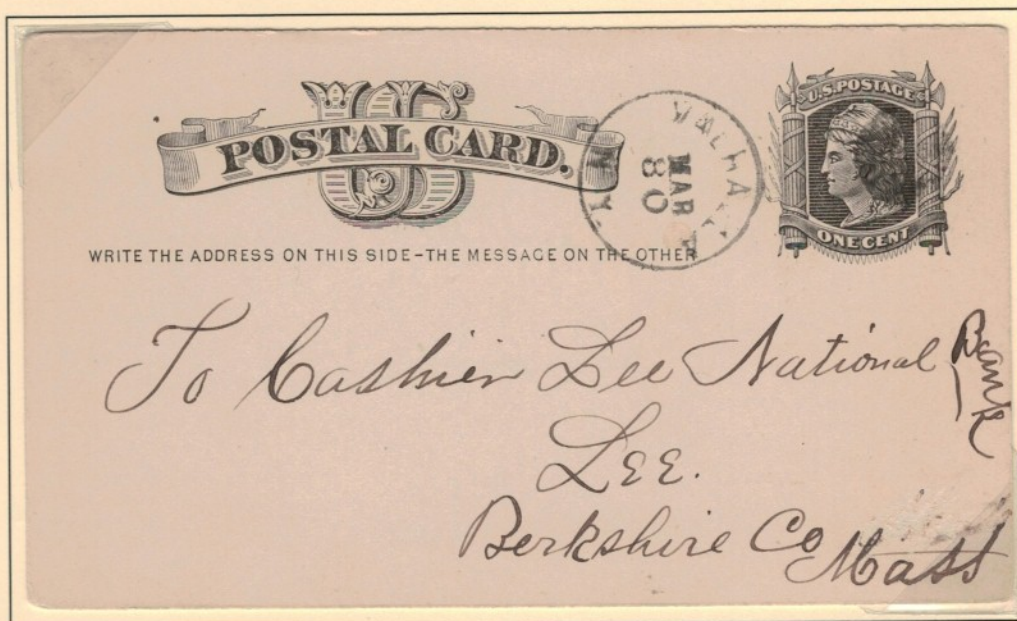 US
POSTAL CARD.
U.S.POSTAGE
ONE CENT
MAR
30
WRITE THE ADDRESS ON THIS SIDE-THE MESSAGE ON THE OTHER
To Cashier Lee National Bank
Lee.
Berkshire Co
Mass